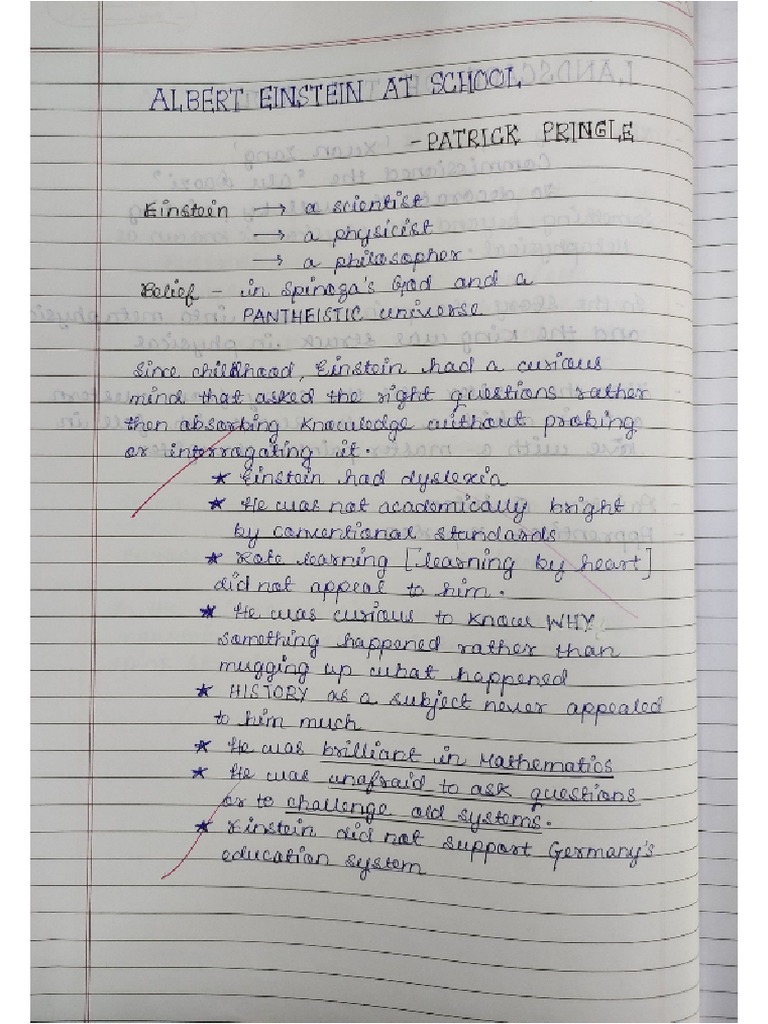 ALBERT EINSTEIN AT SCHOOL
- PATRICK PRINGLE
Einstein → a scientist
→ a physicist
→ a philosopher
Belief - in Spinoza's God and a
PANTHEISTIC universe
Since childhood, Einstein had a curious
mind that asked the right questions rather
then absorbing knowledge without probing
or interrogating it.
★ Einstein had dyslexia
★ He was not academically bright
by conventional standards
★ Rote learning [learning by heart]
did not appeal to him.
★ He was curious to know WHY
something happened rather than
mugging up what happened
★ HISTORY as a subject never appealed
to him much
★ He was brilliant in Mathematics
★ He was unafraid to ask questions
or to challenge old systems.
★ Einstein did not support Germany's
education system